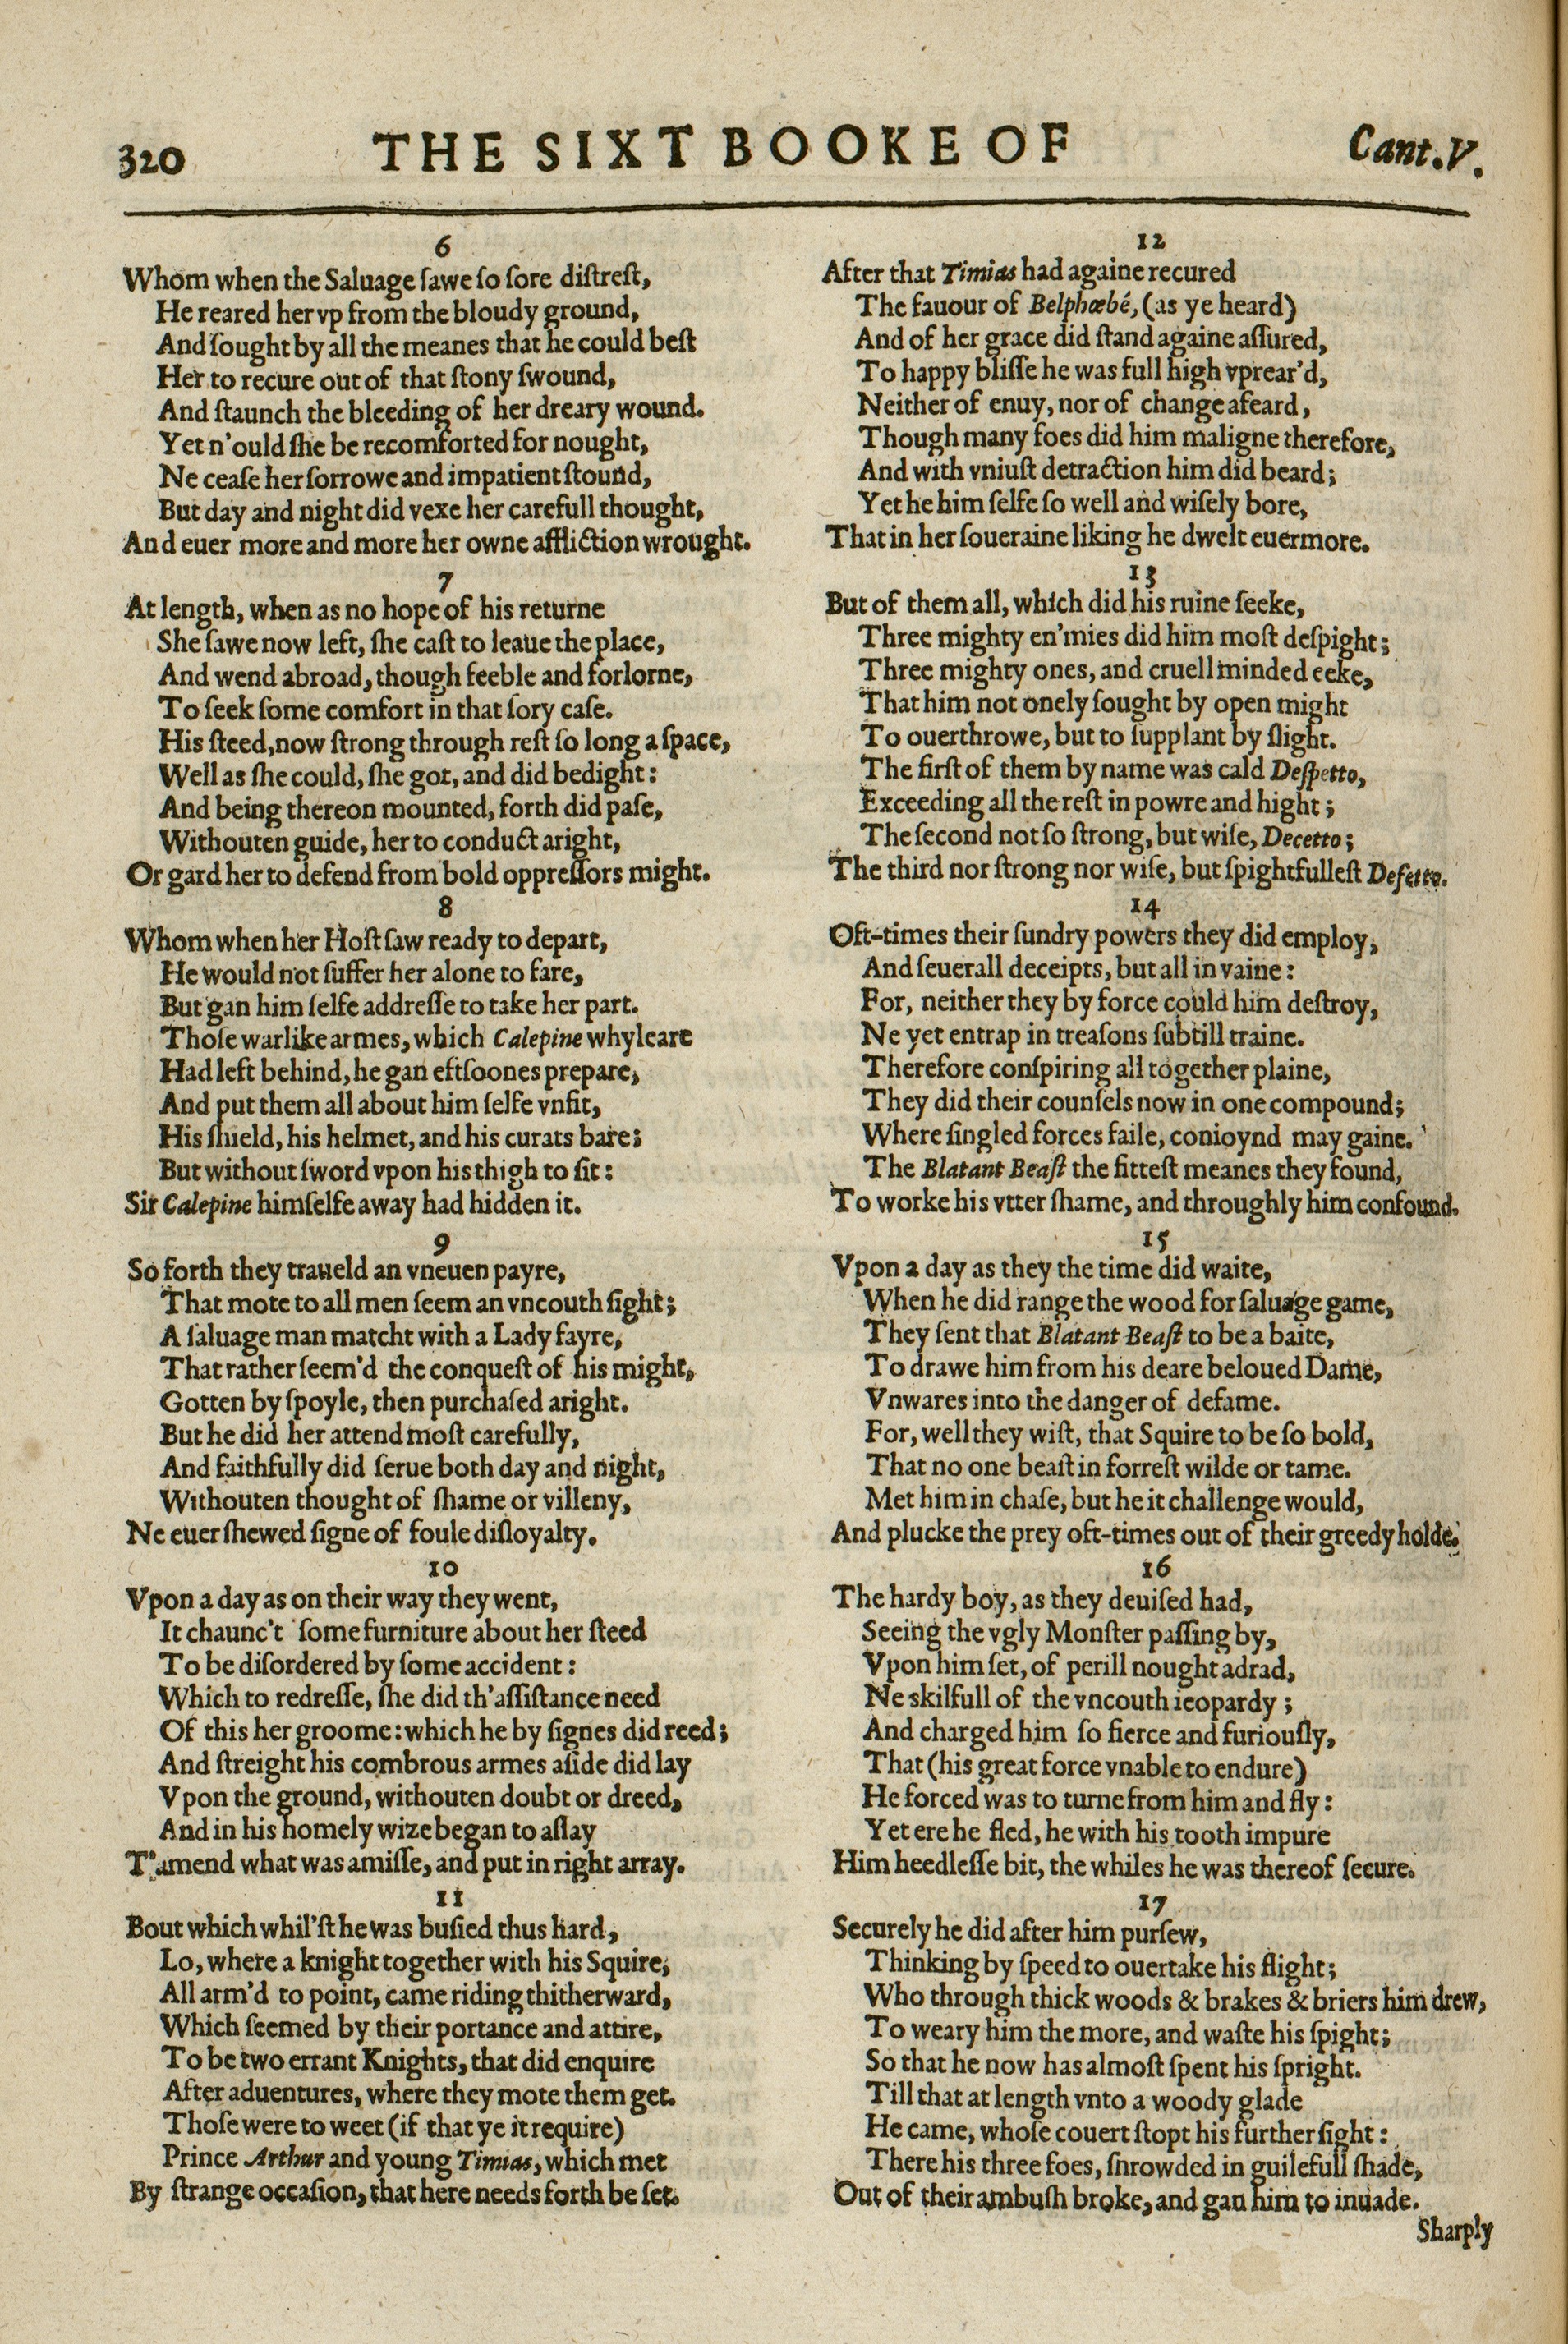 320 THE SIXT BOOKE OF Cant.V.
6
Whom when the Saluage ſawe ſo ſore diſtreſt,
He reared her vp from the bloudy ground,
And ſought by all the meanes that he could beſt
Her to recure out of that ſtony ſwound,
And ſtaunch the bleeding of her dreary wound.
Yet n'ould ſhe be recomforted for nought,
Ne ceaſe her ſorrowe and impatient ſtound,
But day and night did vexe her carefull thought,
And euer more and more her owne affliction wrought.
7
At length, when as no hope of his returne
She ſawe now left, ſhe caſt to leaue the place,
And wend abroad, though feeble and forlorne,
To ſeek ſome comfort in that ſory caſe.
His ſteed, now ſtrong through reſt ſo long a ſpace,
Well as ſhe could, ſhe got, and did bedight:
And being thereon mounted, forth did paſe,
Withouten guide, her to conduct aright,
Or gard her to defend from bold oppreſſors might.
8
Whom when her Hoſt ſaw ready to depart,
He would not ſuffer her alone to fare,
But gan him ſelfe addreſſe to take her part.
Thoſe warlike armes, which Calepine whyleare
Had left behind, he gan eftſoones prepare,
And put them all about him ſelfe vnfit,
His ſhield, his helmet, and his curats bare;
But without ſword vpon his thigh to ſit:
Sir Calepine himſelfe away had hidden it.
9
So forth they traueld an vneuen payre,
That mote to all men ſeem an vncouth ſight;
A ſaluage man matcht with a Lady fayre,
That rather ſeem'd the conqueſt of his might,
Gotten by ſpoyle, then purchaſed aright.
But he did her attend moſt carefully,
And faithfully did ſerue both day and night,
Withouten thought of ſhame or villeny,
Ne euer ſhewed ſigne of foule diſloyalty.
10
Vpon a day as on their way they went,
It chaunc't ſome furniture about her ſteed
To be diſordered by ſome accident:
Which to redreſſe, ſhe did th'aſſiſtance need
Of this her groome: which he by ſignes did reed;
And ſtreight his combrous armes aſide did lay
Vpon the ground, withouten doubt or dreed,
And in his homely wize began to aſſay
T'amend what was amiſſe, and put in right array.
11
Bout which whil'ſt he was buſied thus hard,
Lo, where a knight together with his Squire,
All arm'd to point, came riding thitherward,
Which ſeemed by their portance and attire,
To be two errant Knights, that did enquire
After aduentures, where they mote them get.
Thoſe were to weet (if that ye it require)
Prince Arthur and young Timias, which met
By ſtrange occaſion, that here needs forth be ſet.
12
After that Timias had againe recured
The fauour of Belphœbé, (as ye heard)
And of her grace did ſtand againe aſſured,
To happy bliſſe he was full high vprear'd,
Neither of enuy, nor of change afeard,
Though many foes did him maligne therefore,
And with vniuſt detraction him did beard;
Yet he him ſelfe ſo well and wiſely bore,
That in her ſoueraine liking he dwelt euermore.
13
But of them all, which did his ruine ſeeke,
Three mighty en'mies did him moſt deſpight;
Three mighty ones, and cruell minded eeke,
That him not onely ſought by open might
To ouerthrowe, but to ſupplant by ſlight.
The firſt of them by name was cald Deſpetto,
Exceeding all the reſt in powre and hight;
The ſecond not ſo ſtrong, but wiſe, Decetto;
The third nor ſtrong nor wiſe, but ſpightfulleſt Defetto.
14
Oft-times their ſundry powers they did employ,
And ſeuerall deceipts, but all in vaine:
For, neither they by force could him deſtroy,
Ne yet entrap in treaſons ſubtill traine.
Therefore conſpiring all together plaine,
They did their counſels now in one compound;
Where ſingled forces faile, conioynd may gaine.
The Blatant Beaſt the fitteſt meanes they found,
To worke his vtter ſhame, and throughly him confound.
15
Vpon a day as they the time did waite,
When he did range the wood for ſaluage game,
They ſent that Blatant Beaſt to be a baite,
To drawe him from his deare beloued Dame,
Vnwares into the danger of defame.
For, well they wiſt, that Squire to be ſo bold,
That no one beaſt in forreſt wilde or tame.
Met him in chaſe, but he it challenge would,
And plucke the prey oft-times out of their greedy holde.
16
The hardy boy, as they deuiſed had,
Seeing the vgly Monſter paſſing by,
Vpon him ſet, of perill nought adrad,
Ne skilfull of the vncouth ieopardy;
And charged him ſo fierce and furiouſly,
That (his great force vnable to endure)
He forced was to turne from him and fly:
Yet ere he fled, he with his tooth impure
Him heedleſſe bit, the whiles he was thereof ſecure.
17
Securely he did after him purſew,
Thinking by ſpeed to ouertake his flight;
Who through thick woods & brakes & briers him drew,
To weary him the more, and waſte his ſpight;
So that he now has almoſt ſpent his ſpright.
Till that at length vnto a woody glade
He came, whoſe couert ſtopt his further ſight:
There his three foes, ſhrowded in guilefull ſhade,
Out of their ambuſh broke, and gan him to inuade.
Sharply